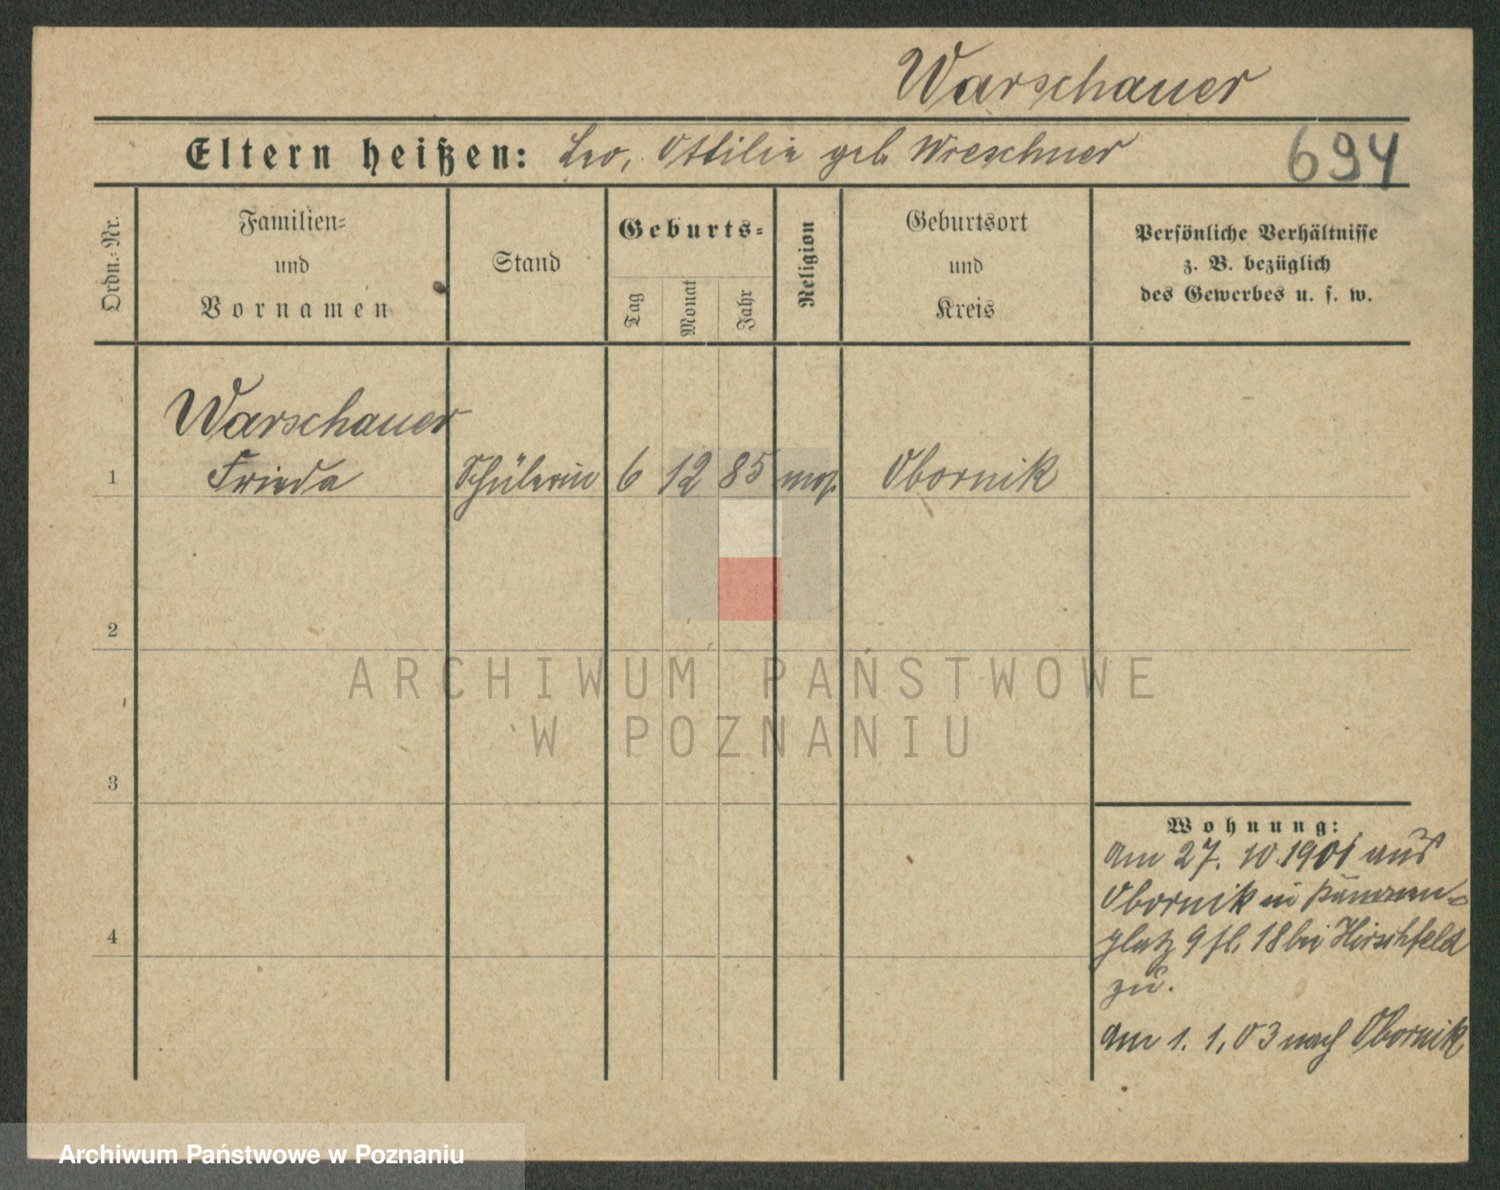 Warschauer
Eltern heißen: Leo, Ottilie geb Wreschner
694
Ordn.-Nr.
Familien-
und
Vornamen
Stand
Geburts-
Tag
Monat
Jahr
Religion
Geburtsort
und
Kreis
Persönliche Verhältnisse
z. B. bezüglich
des Gewerbes u. s. w.
Warschauer
1 Frieda Schülerin 6 12 85 mos. Obornik
2
ARCHIWUM PAŃSTWOWE
W POZNANIU
3
Wohnung:
Am 27. 10. 1901 aus
Obornik in
platz 9 fl. 18 bei Hirschfeld
zu.
4
Am 1. 1. 03 nach Obornik
Archiwum Państwowe w Poznaniu